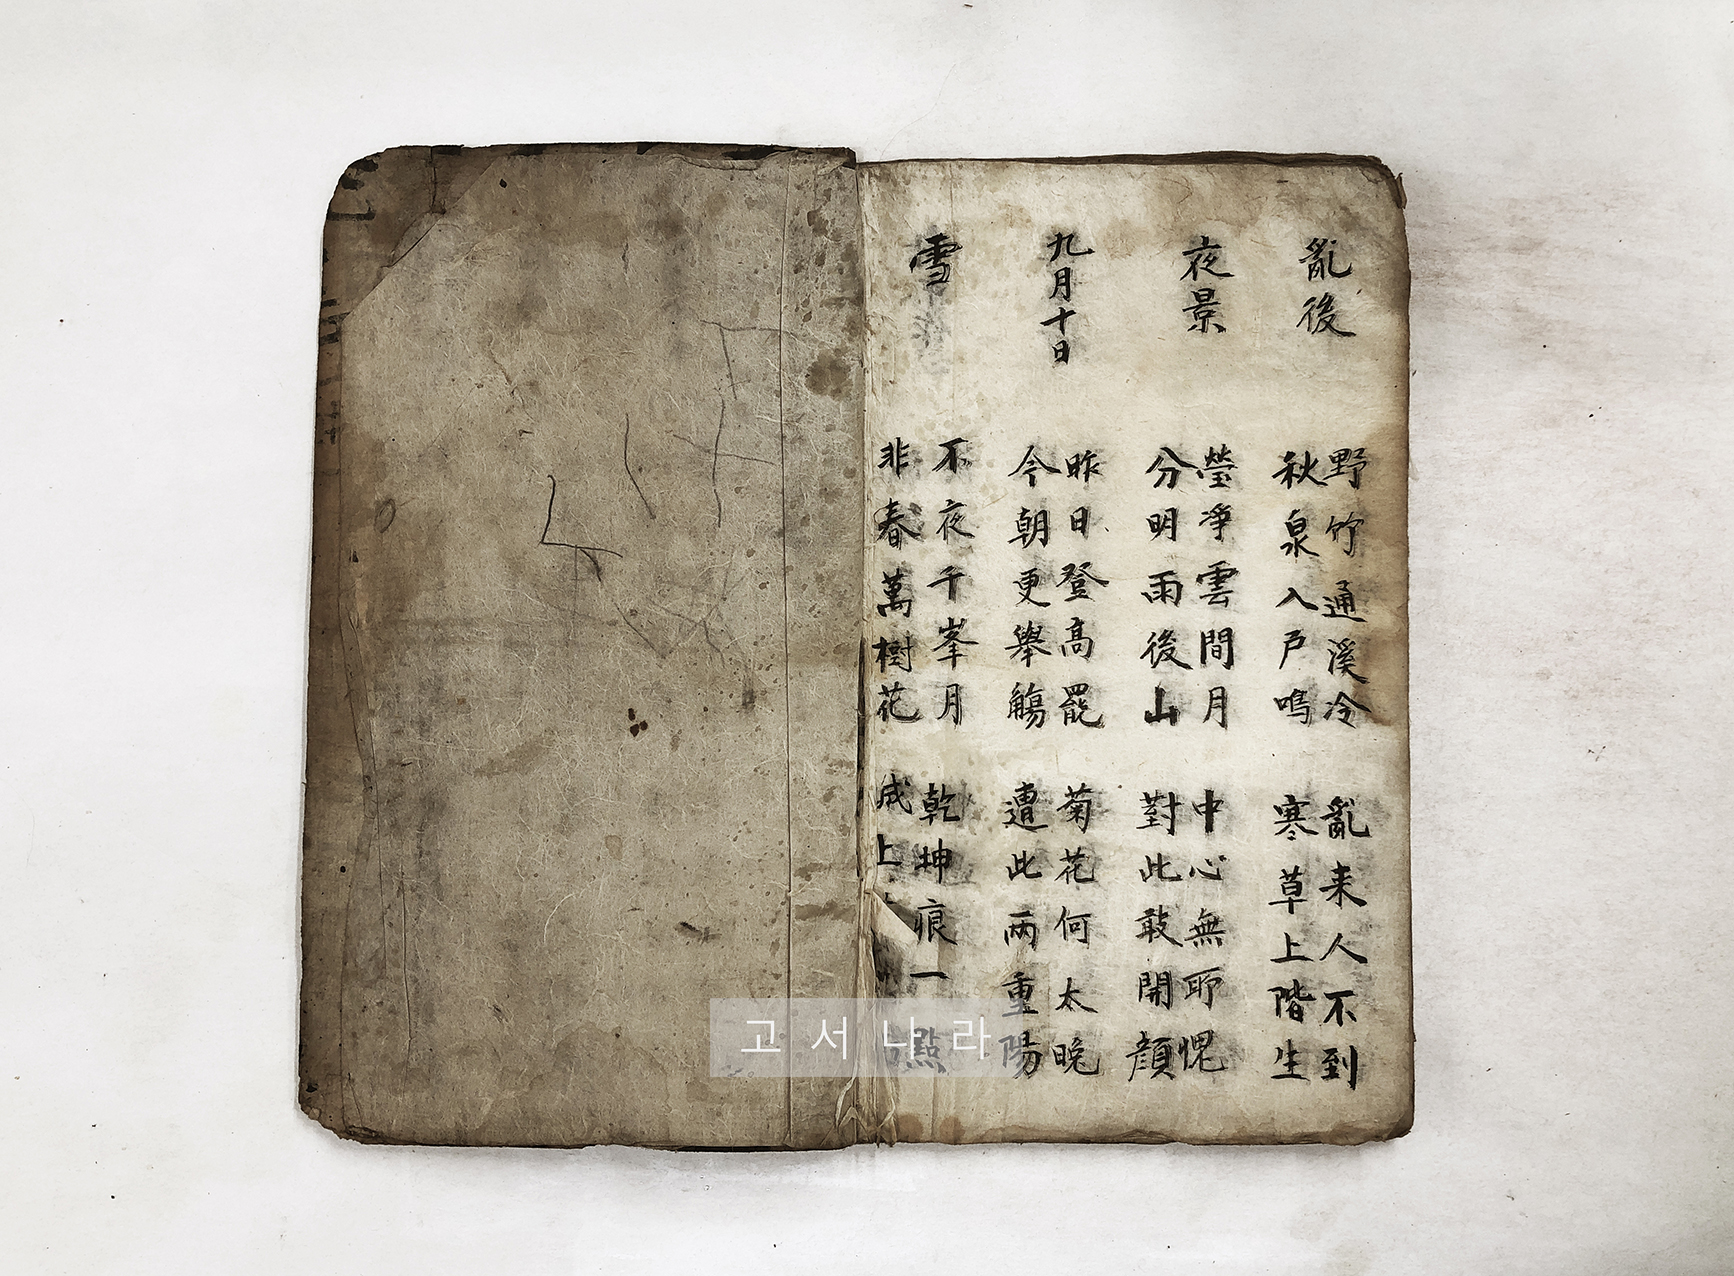 亂後
野竹通溪冷
秋泉入戶鳴
亂来人不到
寒草上階生
夜景
瑩淨雲間月
分明雨後山
中心無耶愧
對此敢開顔
九月十日
昨日登高罷
今朝更舉觴
菊花何太晚
遭此兩重陽
雪
不夜千峯月
非春萬樹花
乾坤痕一點
成上
고서나라